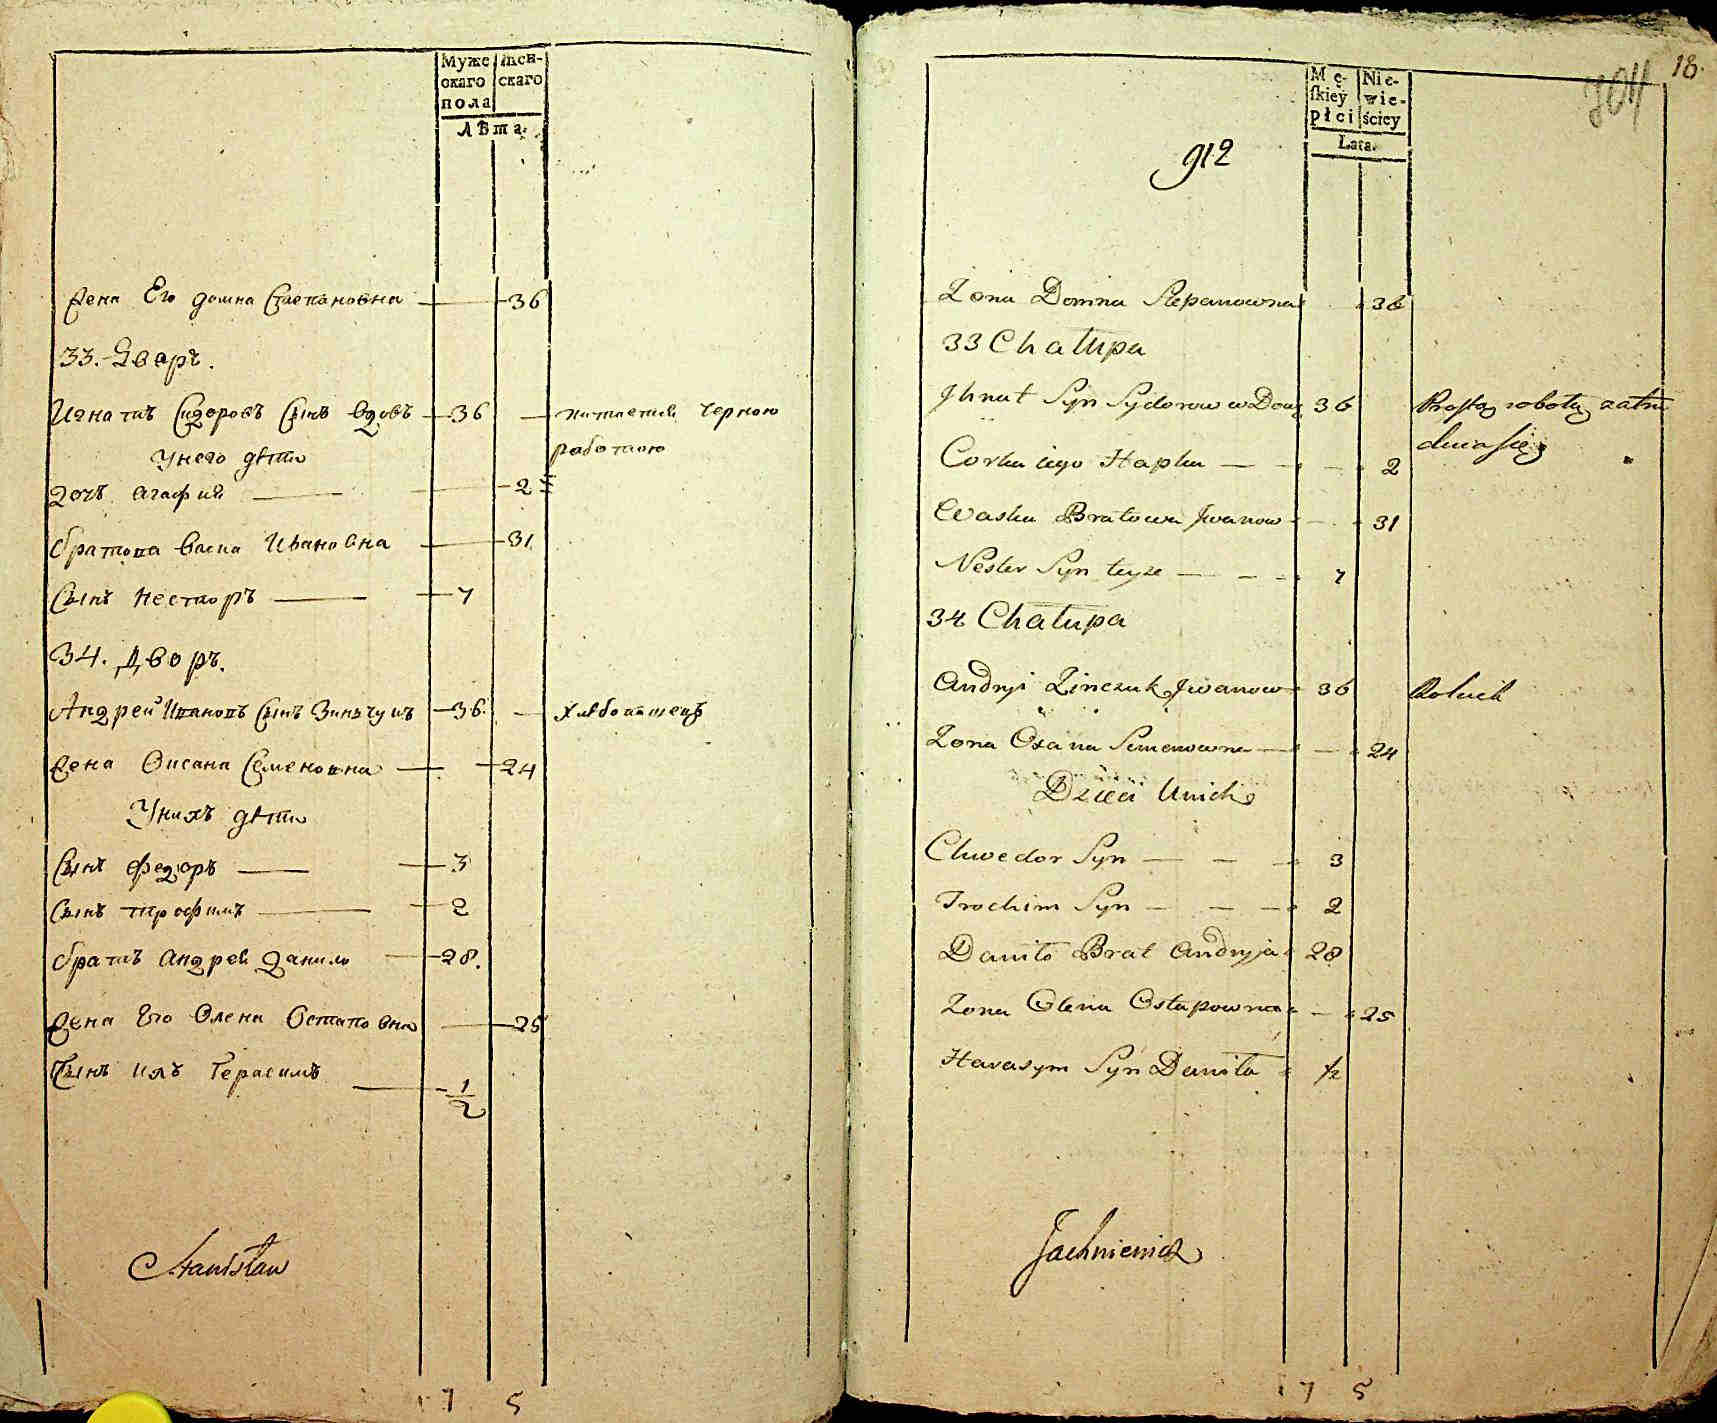 Муже
скаго
пола
жен-
скаго
Лѣта.
жена Его домна Степановна 36
33. Дворъ.
Игнатъ Сидоровъ Сынъ вдовъ 36 питается черною
работою
Унего дѣти
дочь агафия 2
братова васка Ивановна 31
Сынъ Несторъ 7
34. Дворъ.
Андрей Ивановъ Сынъ Зинчукъ 36. хлебопашецъ
жена Оксана Семеновна 24
Унихъ дѣти
Сынъ Федоръ 3
Сынъ трофимъ 2
братъ Андрей данило 28.
жена Его Олена Остаповна 25
Сынъ ихъ Герасимъ 1/2
Stanisław
7 5
18.
704
Mę-
ſkiey
płci
Nie-
wie-
ściey
Lata.
912
Żona Domna Stepanowna 36
33 Chałupa
Jhnat Syn Sydorow wDow 36 Prostą robotą zatru
dnia się
Corka iego Hapka 2
Waska Bratowa Jwanow 31
Nester Syn teyże 7
34 Chałupa
Andryi Zinczuk Jwanow 36 Rolnik
Żona Oxana Semenowna 24
Dzieci Unich
Chwedor Syn 3
Trochim Syn 2
Daniło Brat Andryja 28
Żona Olena Ostapowna 25
Harasym Syn Daniła 1/2
Jachniewicz
7 5